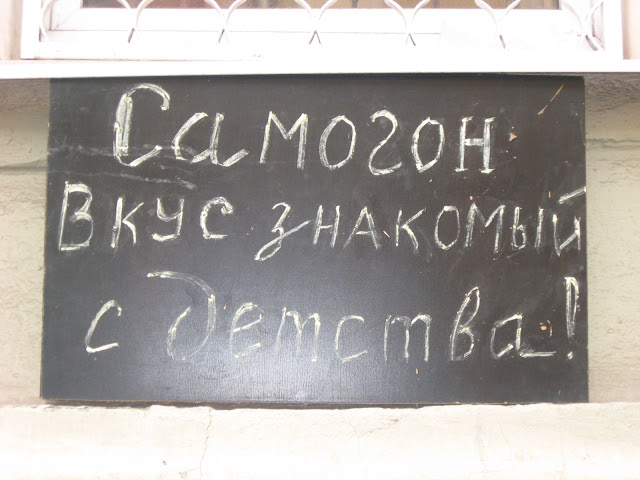 Самогон
вкус знакомый
с детства!